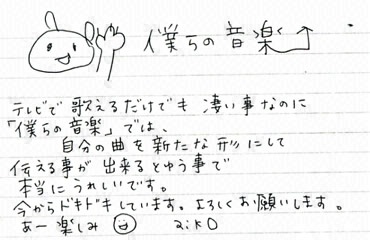 僕らの音楽
テレビで歌えるだけでも凄い事なのに
「僕らの音楽」では、
自分の曲を新たな形にして
伝える事が出来るとゆう事で
本当にうれしいです。
今からドキドキしています。よろしくお願いします。
あー楽しみ aiko